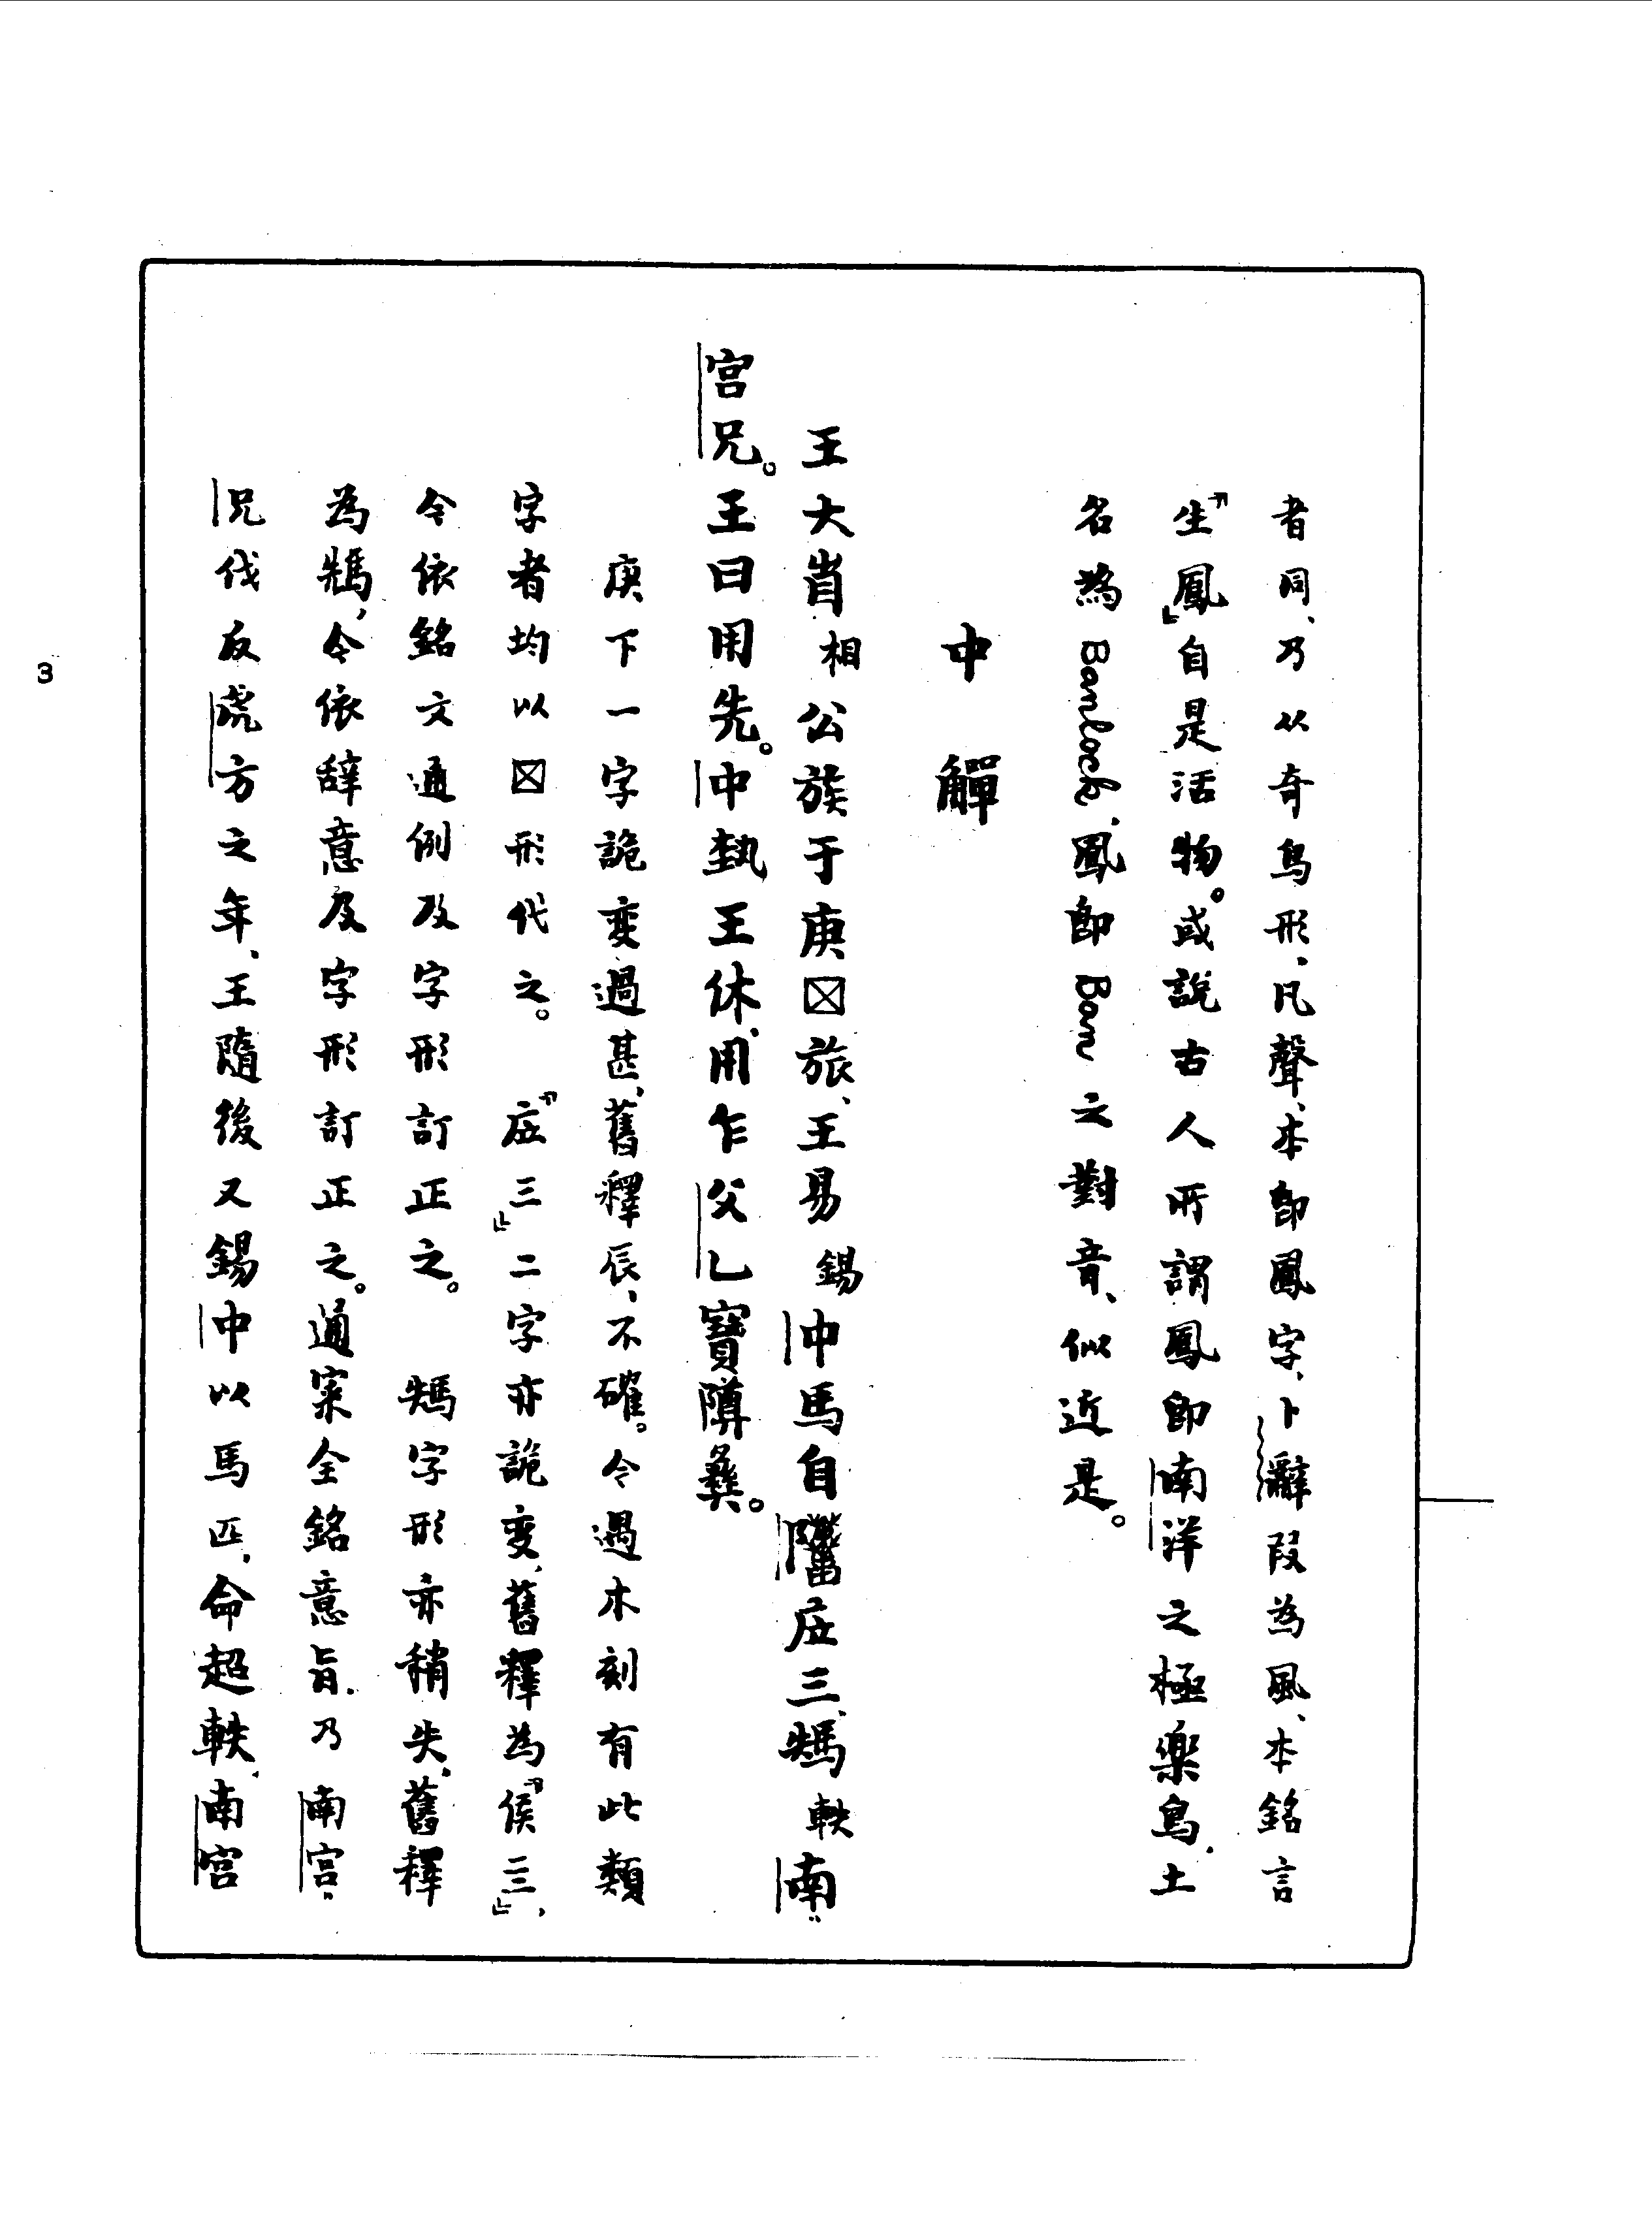 者同、乃从奇鳥形、凡聲、本即鳳字、卜辭叚為風、本銘言
『生鳳』自是活物。或說古人所謂鳳即南洋之極楽鳥、土
名為Banlock、鳳即Ban之對音、似近是。
中觶
王大省相公族于庚☒旅、王易錫中馬自隓应三、䮍軼南
宮兄。王曰用先。中埶王休、用乍父乙寶𨺅彝。
庚下一字詭変過甚、舊釋辰、不確。今遇木刻有此類
字者均以☒形代之。『应三』二字亦詭変、舊釋為『侯三』、
今依銘文通例及字形訂正之。字形亦稍失、舊釋
為、今依辞意及字形訂正之。通寀全銘意旨、乃南宮
兄伐反虎方之年、王隨後又錫中以馬匹、命超軼南宮
3